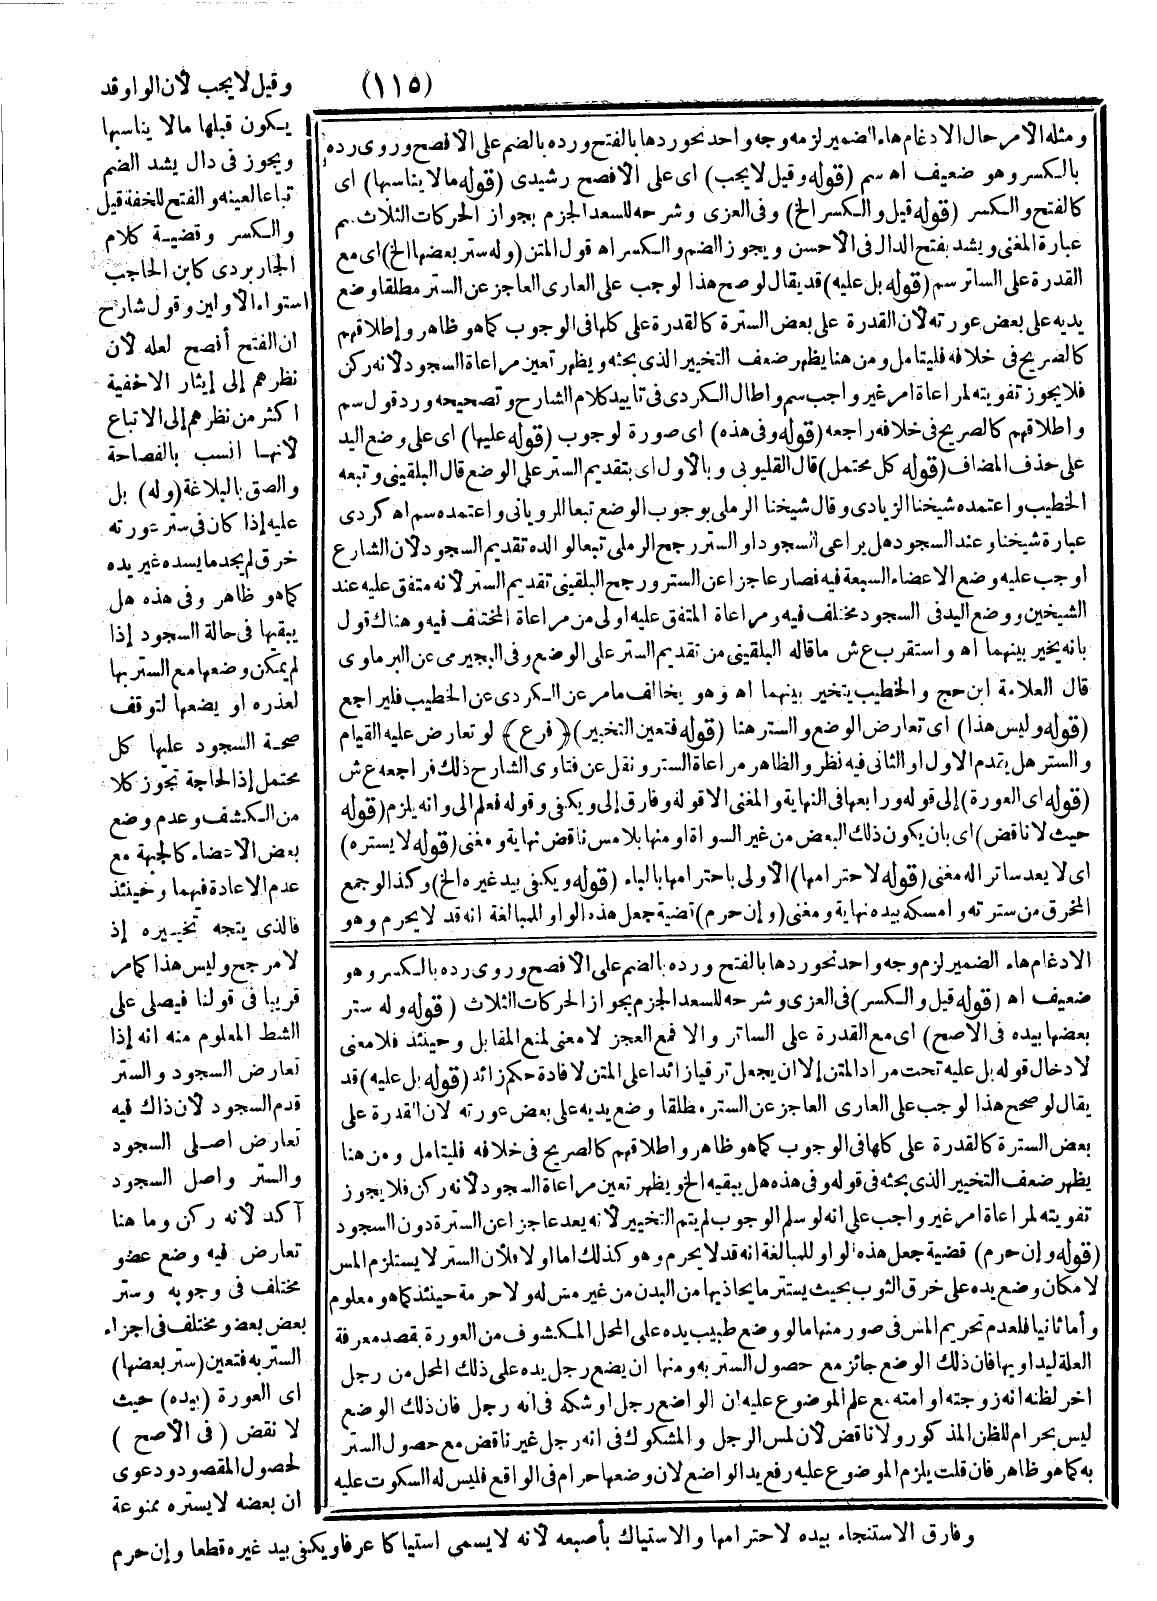 (١١٥)
وقيل لا يجب لأن الواو قد
يكون قبلها ما لا يناسبها
ويجوز فى دال يشد الضم
تباعا لعينه والفتح للخفة قيل
والكسر وقضية كلام
الجاربردى كابن الحاجب
استواء الأولين وقول شارح
ان الفتح أفصح لعله لأن
نظرهم إلى إيثار الاخفية
اكثر من نظرهم إلى الاتباع
لأنها انسب بالفصاحة
والصق بالبلاغة (وله) بل
عليه إذا كان فى ستر عورته
خرق لم يجد ما يسده غير يده
كما هو ظاهر وفى هذه هل
يبقيها فى حالة السجود إذا
لم يمكن وضعها مع الستر بها
لعذره او يضعها لتوقف
صحة السجود عليها كل
محتمل إذ الحاجة تجوز كلا
من الكشف وعدم وضع
بعض الاعضاء كالجبهة مع
عدم الاعادة فيهما وحينئذ
فالذى يتجه تخييره إذ
لا مرجح وليس هذا كما مر
قريبا فى قولنا فيصلى على
الشط المعلوم منه انه إذا
تعارض السجود والستر
قدم السجود لأن ذاك فيه
تعارض اصلى السجود
والستر واصل السجود
آكد لأنه ركن وما هنا
تعارض فيه وضع عضو
مختلف فى وجوبه وستر
بعض بعضو مختلف فى اجزاء
الستر به فتعين (ستر بعضها)
اى العورة (بيده) حيث
لا نقض (فى الأصح)
لحصول المقصود ودعوى
ان بعضه لا يستره ممنوعة
وفارق الاستنجاء بيده لاحترامها والاستياك بأصبعه لأنه لا يسمى استياكا عرفا ويكفى بيد غيره قطعا وإن حرم
ومثله الأمر حال الادغام هاء الضمير لزمه وجه واحد نحو ردها بالفتح ورده بالضم على الأفصح وروى رده
بالكسر وهو ضعيف اه سم (قوله وقيل لا يجب) اى على الأفصح رشيدى (قوله ما لا يناسبها) اى
كالفتح والكسر (قوله قيل والكسر الخ) وفى العزى وشرحه للسعد الجزم بجواز الحركات الثلاث سم
عبارة المغنى ويشد بفتح الدال فى الأحسن ويجوز الضم والكسر اه قول المتن (وله ستر بعضها الخ) اى مع
القدرة على الساتر سم (قوله بل عليه) قد يقال لو صح هذا لوجب على العارى العاجز عن الستر مطلقا وضع
يديه على بعض عورته لأن القدرة على بعض السترة كالقدرة على كلها فى الوجوب كما هو ظاهر وإطلاقهم
كالصريح فى خلافه فليتامل ومن هنا يظهر ضعف التخيير الذى بحثه ويظهر تعين مراعاة السجود لأنه ركن
فلا يجوز تفويته لمراعاة امر غير واجب سم واطال الكردى فى تاييد كلام الشارح وتصحيحه ورد قول سم
واطلاقهم كالصريح فى خلافه راجعه (قوله وفى هذه) اى صورة لوجوب (قوله عليها) اى على وضع اليد
على حذف المضاف (قوله كل محتمل) قال القليوبى وبالأول اى بتقديم الستر على الوضع قال البلقينى وتبعه
الخطيب واعتمده شيخنا الزيادى وقال شيخنا الرملى بوجوب الوضع تبعا للرويانى واعتمده سم اه كردى
عبارة شيخنا وعند السجود هل يراعى السجود او الستر رجح الرملى تبعا لوالده تقديم السجود لأن الشارع
اوجب عليه وضع الاعضاء السبعة فيه فصار عاجزا عن الستر ورجح البلقينى تقديم الستر لأنه متفق عليه عند
الشيخين ووضع اليد فى السجود مختلف فيه ومراعاة المتفق عليه اولى من مراعاة المختلف فيه وهناك قول
بانه يخير بينهما اه واستقرب ع ش ما قاله البلقينى من تقديم الستر على الوضع وفى البجيرمى عن البرماوى
قال العلامة ابن حج والخطيب يتخير بينهما اه وهو يخالف ما مر عن الكردى عن الخطيب فليراجع
(قوله وليس هذا) اى تعارض الوضع والستر هنا (قوله فتعين التخيير) ﴿فرع﴾ لو تعارض عليه القيام
والستر هل يقدم الاول او الثانى فيه نظر والظاهر مراعاة الستر ونقل عن فتاوى الشارح ذلك فراجعه ع ش
(قوله اى العورة) إلى قوله ورابعها فى النهاية والمغنى الا قوله وفارق إلى ويكفى وقوله فعلم الى وانه يلزم (قوله
حيث لا ناقض) اى بان يكون ذلك البعض من غير السوأة او منها بلا مس ناقض نهاية ومغنى (قوله لا يستره)
اى لا يعد ساترا له مغنى (قوله لاحترامها) الأولى باحترامها بالباء (قوله ويكفى بيد غيره الخ) وكذا لو جمع
المخرق من سترته وامسكه بيده نهاية ومغنى (وإن حرم) قضية جعل هذه الواو للمبالغة انه قد لا يحرم وهو
الادغام هاء الضمير لزم وجه واحد نحو ردها بالفتح ورده بالضم على الأفصح وروى رده بالكسر وهو
ضعيف اه (قوله قيل والكسر) فى العزى وشرحه للسعد الجزم بجواز الحركات الثلاث (قوله وله ستر
بعضها بيده فى الاصح) اى مع القدرة على الساتر والا فمع العجز لا معنى لمنع المقابل وحينئذ فلا معنى
لادخال قوله بل عليه تحت مراد المتن إلا ان يجعل ترقيا زائدا على المتن لافادة حكم زائد (قوله بل عليه) قد
يقال لو صح هذا لوجب على العارى العاجز عن الستر مطلقا وضع يديه على بعض عورته لان القدرة على
بعض السترة كالقدرة على كلها فى الوجوب كما هو ظاهر واطلاقهم كالصريح فى خلافه فليتامل ومن هنا
يظهر ضعف التخيير الذى بحثه فى قوله وفى هذه هل يبقيه الخ ويظهر تعين مراعاة السجود لأنه ركن فلا يجوز
تفويته لمراعاة امر غير واجب على انه لو سلم الوجوب لم يتم التخيير لأنه يعد عاجزا عن السترة دون السجود
(قوله وإن حرم) قضية جعل هذه الواو للمبالغة انه قد لا يحرم وهو كذلك اما اولا فلأن الستر لا يستلزم المس
لامكان وضع يده على خرق الثوب بحيث يستتر ما يحاذيها من البدن من غير مس له ولا حرمة حينئذ كما هو معلوم
وأما ثانيا فلعدم تحريم المس فى صور منها ما لو وضع طبيب يده على المحل المكشوف من العورة بقصد معرفة
العلة ليداويها فان ذلك الوضع جائز مع حصول الستر به ومنها ان يضع رجل يده على ذلك المحل من رجل
اخر لظنه انه زوجته او امته مع علم الموضوع عليه ان الواضع رجل او شكه فى انه رجل فان ذلك الوضع
ليس بحرام للظن المذكور ولا ناقض لأن لمس الرجل والمشكوك فى انه رجل غير ناقض مع حصول الستر
به كما هو ظاهر فان قلت يلزم الموضوع عليه رفع يد الواضع لان وضعها حرام فى الواقع فليس له السكوت عليه